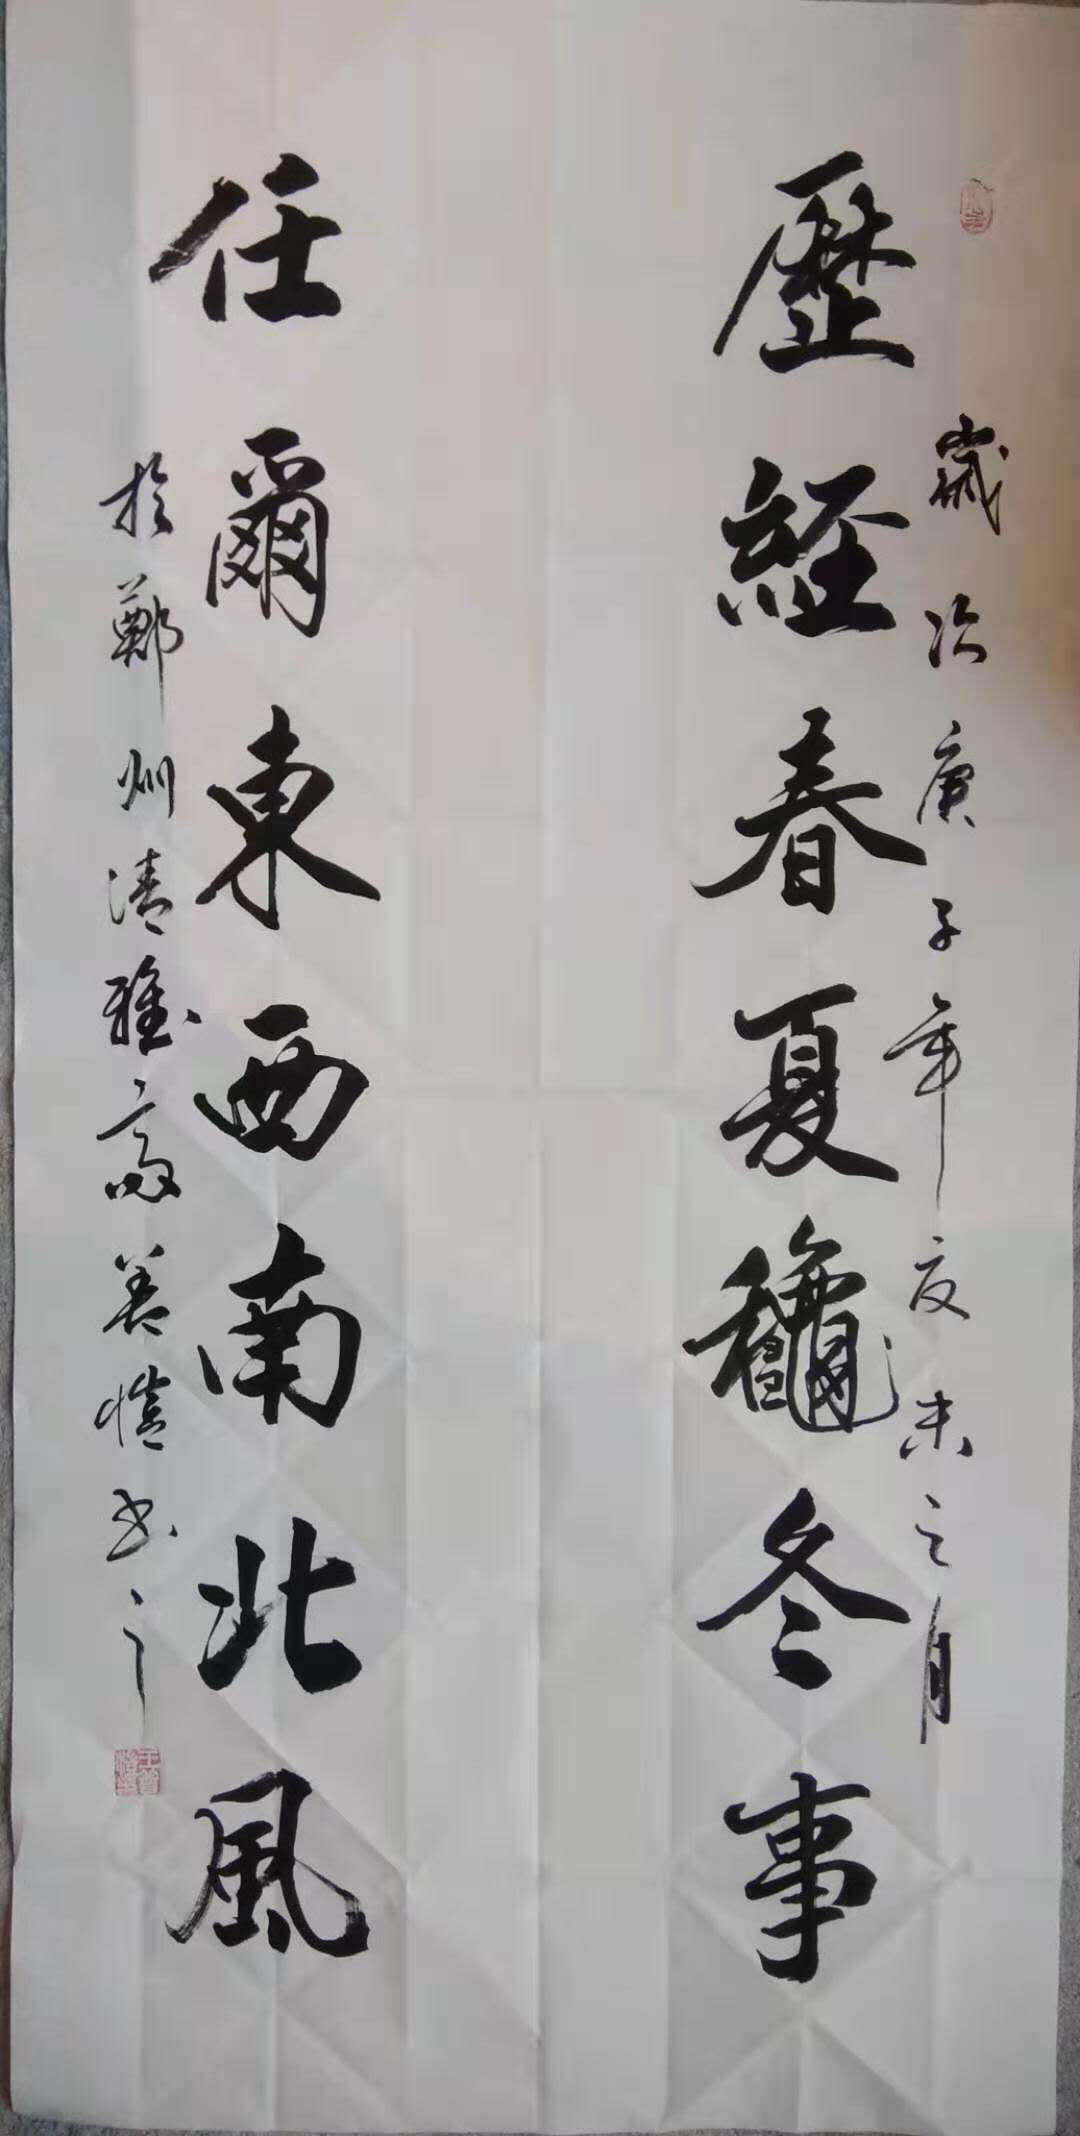 歲次庚子年癸未之月
歷經春夏龝冬事
任爾東西南北風
於鄭州清雅齋善愷書之